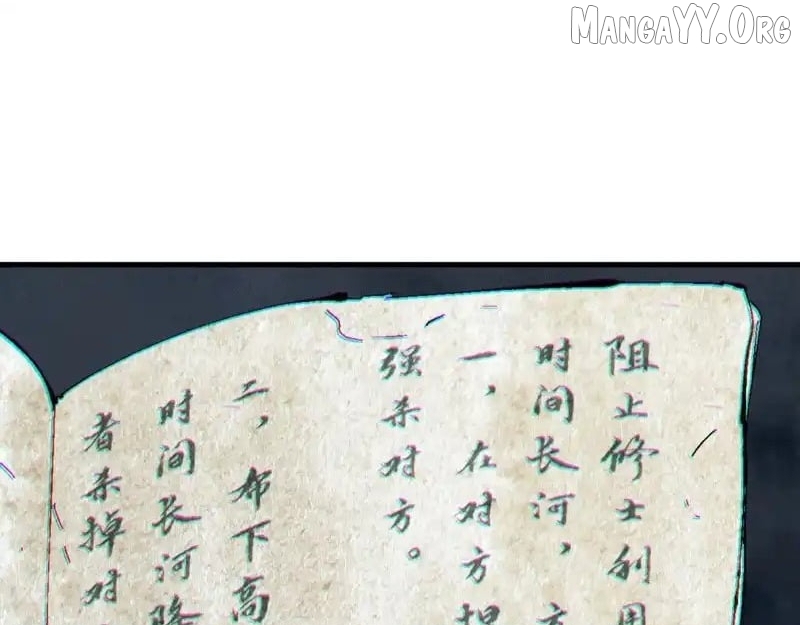 MangaYY.Org
阻止修士利用
时间长河，方
一，在对方捏
强杀对方。
二，布下高
时间长河降
者杀掉对